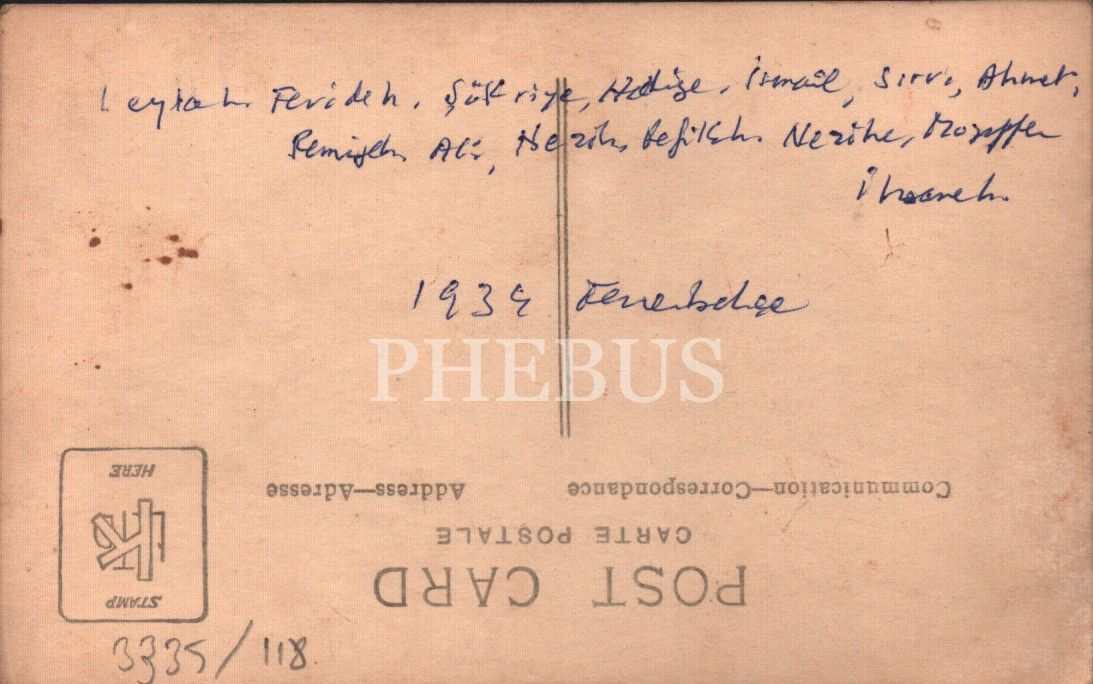 Leylah Ferideh, Şükriye, Hatiçe, İsmail, Sırrı, Ahmet,
Remizeh Ali, Nezih, Refikh. Nezihe, Mozaffer
İhsaneh.
1934 Fenerbahçe
PHEBUS
Communication—Correspondance Address—Adresse
CARTE POSTALE
POST CARD
STAMP
HERE
3335/118